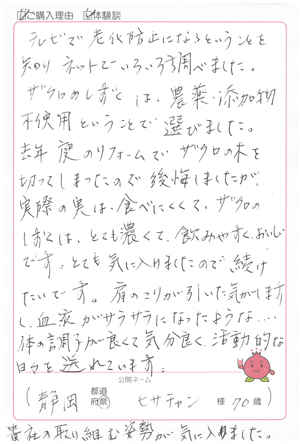 ご購入理由 体験談
テレビで老化防止になるということを
知り ネットでいろいろ調べました。
ザクロのしずくは、農薬・添加物
不使用ということで選びました。
去年 庭のリフォームでザクロの木を
切ってしまったので後悔しましたが、
実際の実は食べにくくて、ザクロの
しずくは、とても濃くて、飲みやすく、おいしい
です。とても気に入りましたので続け
たいです。肩のこりが引いた気がします
し、血液がサラサラになったような…
体の調子が良くて気分良く、活動的な
日々を送れています。
公開ネーム
(静岡 都道府県 ヒサチャン 様 70歳)
貴社の取り組む姿勢が気に入りました。